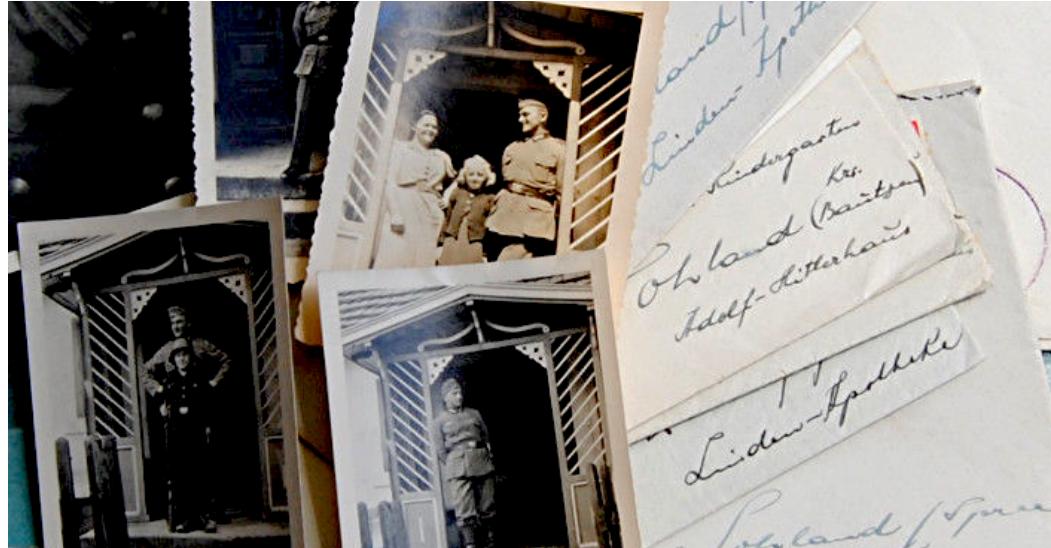 Linden-
Kindergarten
Krs.
Sohland (Bautzen)
Adolf-Hitlerhaus
Linden-Apotheke
Sohland / Spree